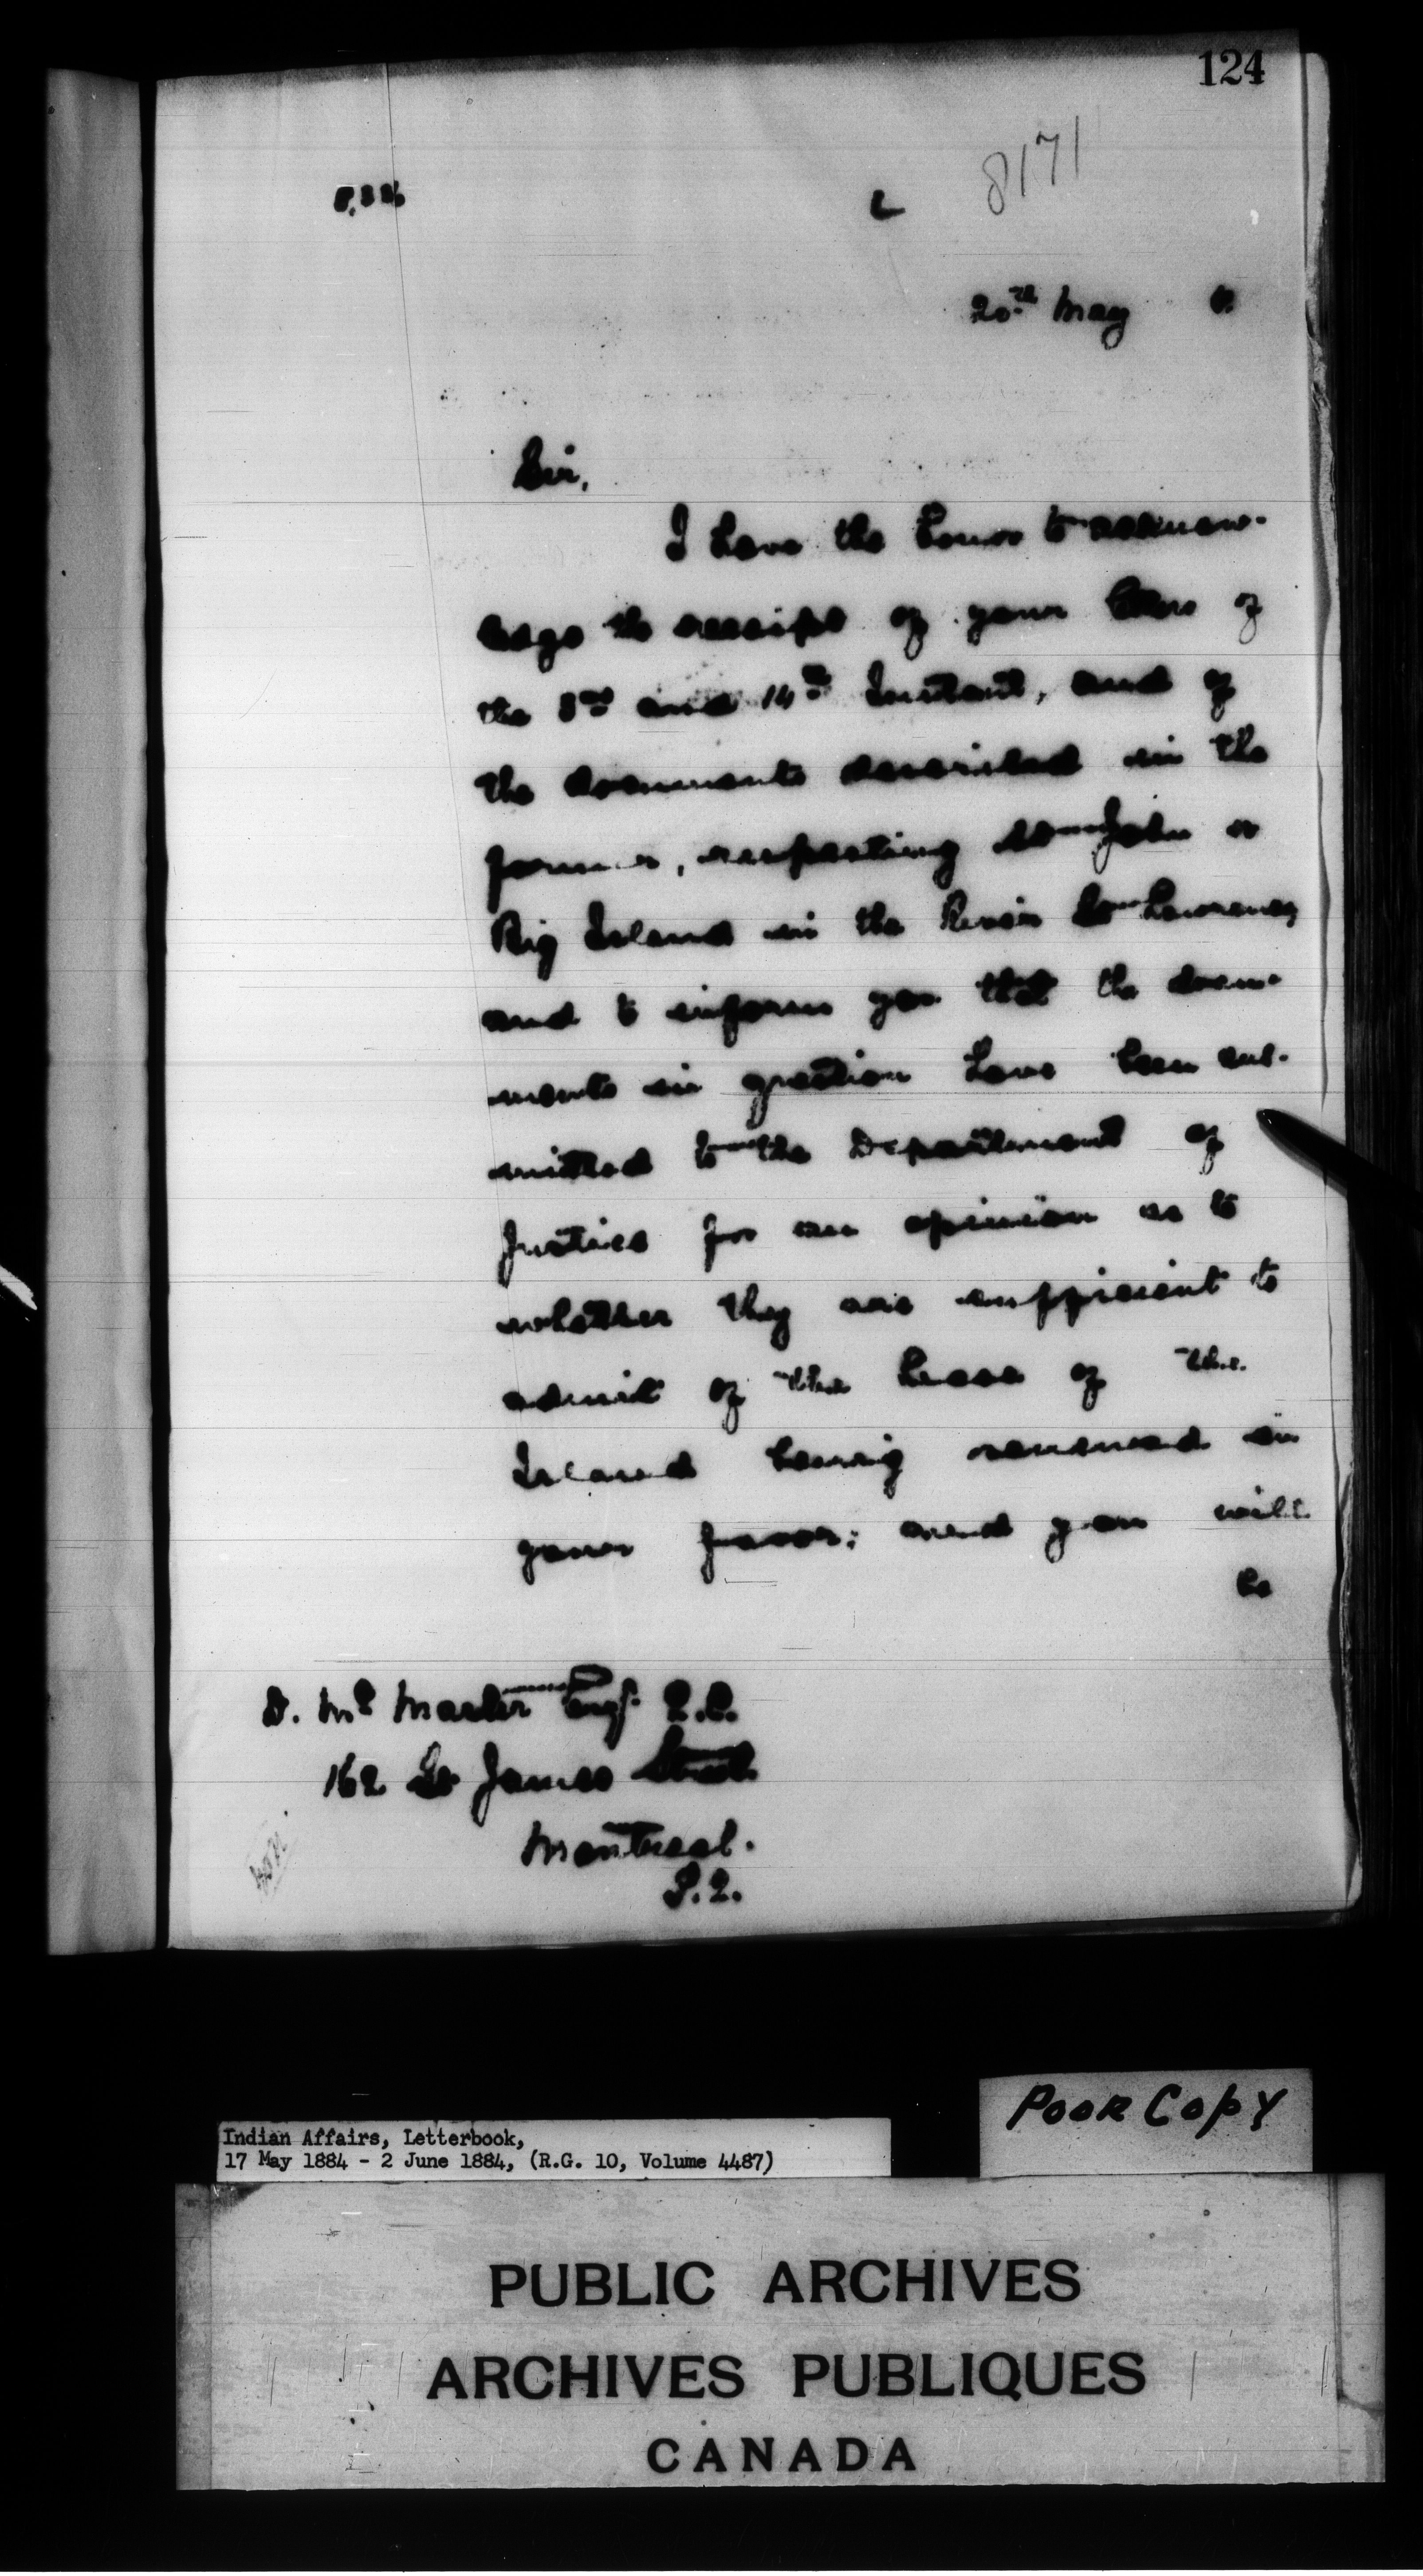 124
8171
L
20th May
Sir,
I have the honor to acknow-
ledge the receipt of your letters of
the 3rd and 14th Instant, and of
the documents described in the
former, respecting St John or
Big Island in the River St Lawrence,
and to inform you that the docu-
ments in question have been sub-
mitted to the Department of
Justice for an opinion as to
whether they are sufficient to
admit of the lease of the
Island being renewed in
your favor; and you will
be
D. McMaster Esq. Q.C.
162 St James Street.
Montreal.
P.Q.
Poor Copy
Indian Affairs, Letterbook,
17 May 1884 - 2 June 1884, (R.G. 10, Volume 4487)
PUBLIC ARCHIVES
ARCHIVES PUBLIQUES
CANADA